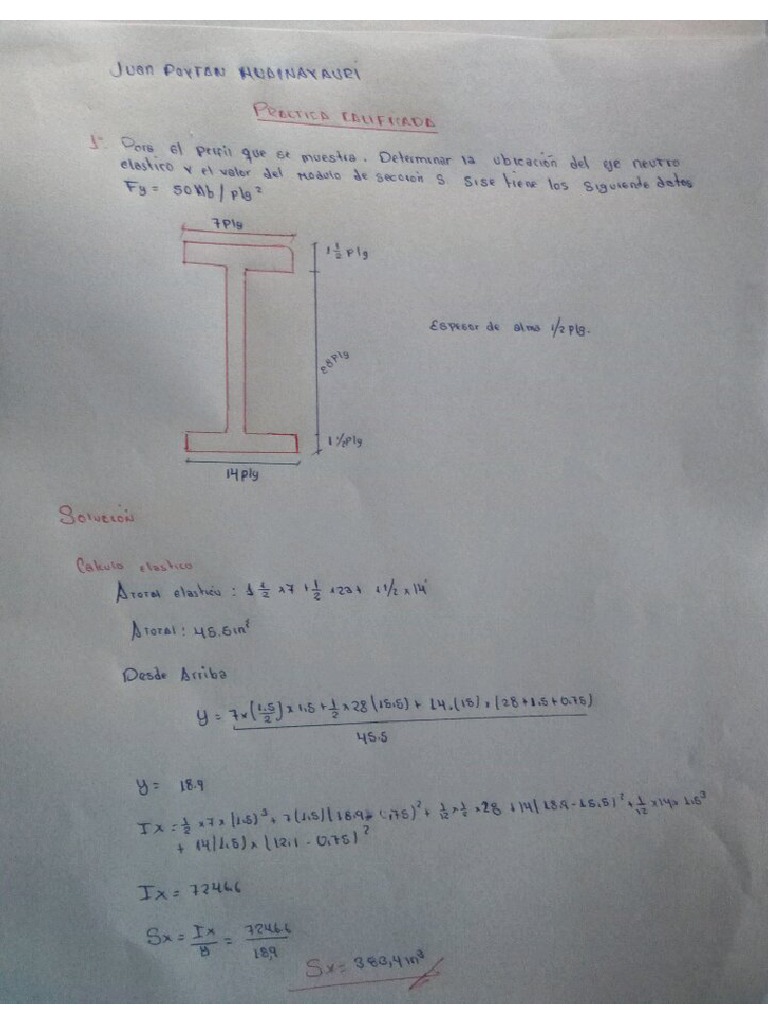 Juan Poytan Huarnayauri
PRACTICA CALIFICADA
1º Para el perfil que se muestra. Determinar la ubicación del eje neutro
elastico y el valor del modulo de sección S. Si se tiene los siguiente datos
Fy = 50 klb/plg²
7plg
1 1/2 plg
28 plg
Espesor de alma 1/2 plg.
1 1/2 plg
14 plg
Solución
Calculo elastico
A total elastico : 1 1/2 x 7 + 1/2 x 28 + 1 1/2 x 14
A total : 45.5 in²
Desde Arriba
y = 7x(1.5/2) x 1.5 + 1/2 x 28 (15.5) + 14.(15) x (28+1.5+0.75)
45.5
y = 18.9
Ix = 1/2 x 7 x (1.5)³ + 7(1.5)(18.9 - 0.75)² + 1/12 x 1/2 x 28 + 14(18.9 - 15.5)² + 1/12 x 14 x 1.5³
+ 14(1.5) x (12.1 - 0.75)²
Ix = 7246.6
Sx = Ix/y = 7246.6/18,9
Sx = 383,4 in³